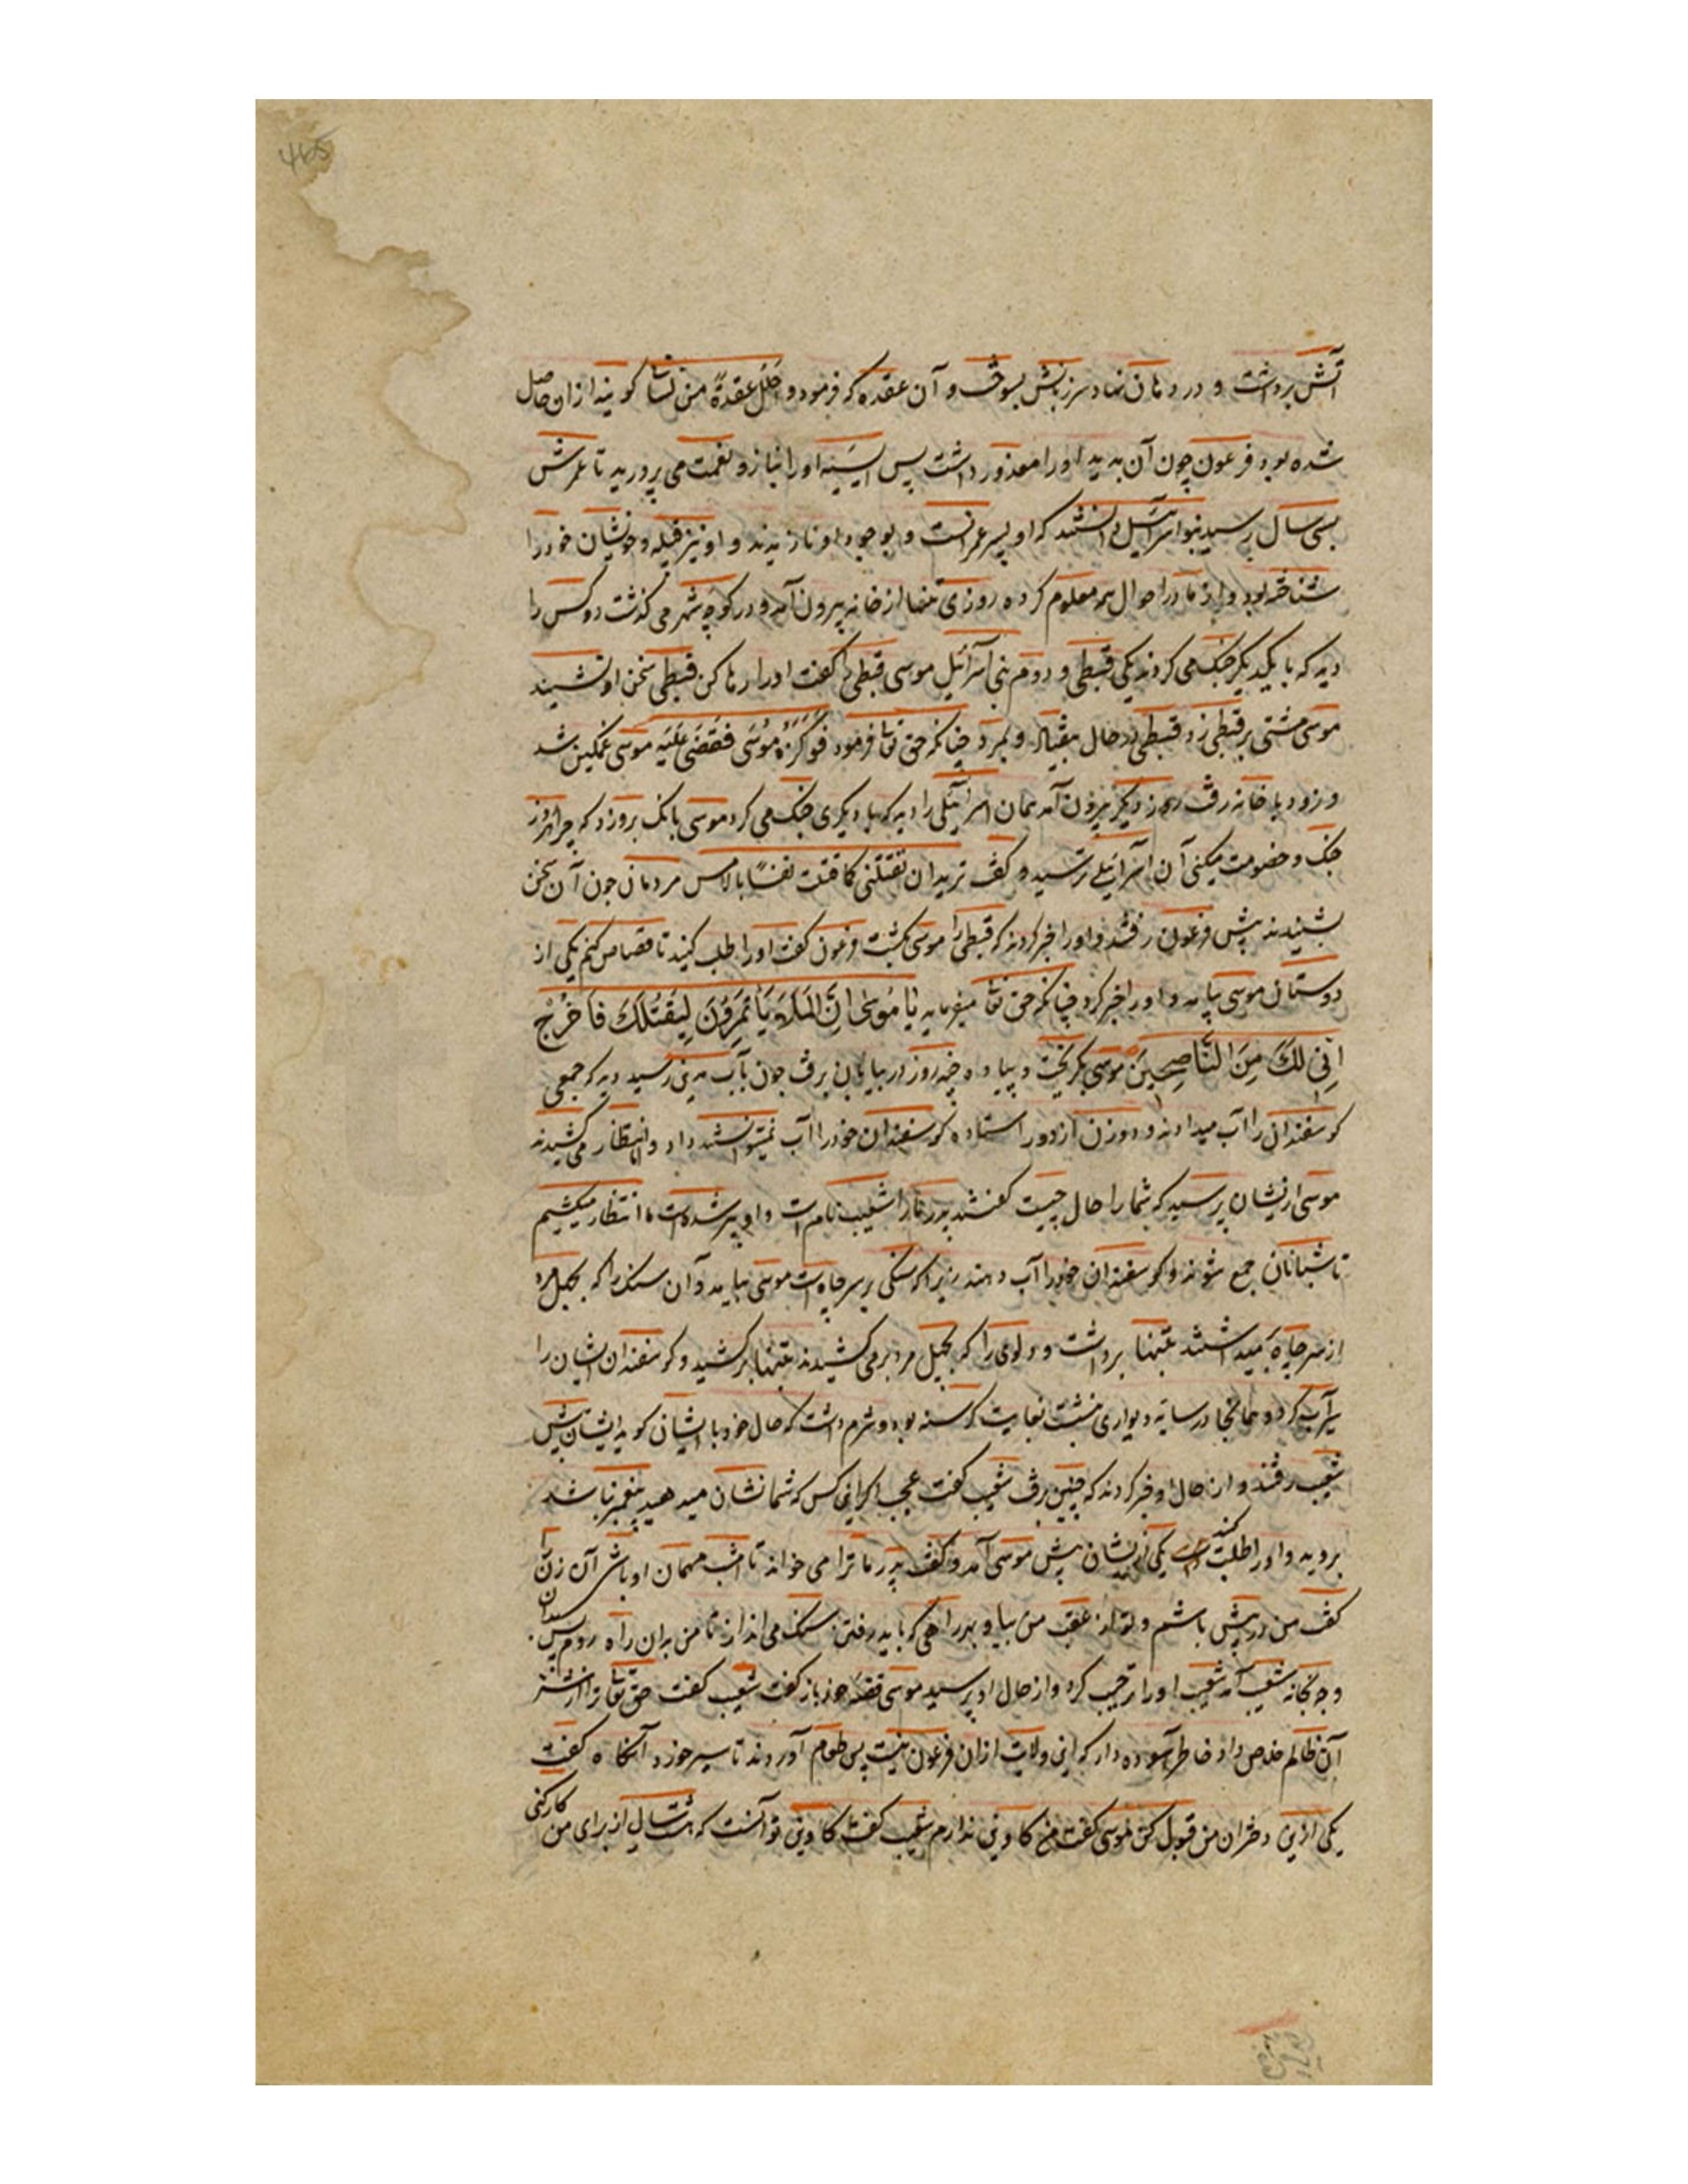 آتش برداشت و در دهان نهاد سر زبانش بسوخت و آن عقده که فرمود و احلل عقدة من لسانی کویند از ان حاصل
شده بود فرعون چون آن بدید او را معذور داشت پس آسیه او را بناز و نعمت می پرورید تا عمرش
بسی سال رسید بنو اسرآئیل دانستند که او پسر عمرانست و بوجود او نازیدند و او نیز قبیله و خویشان خود را
شناخته بود و از مادر احوال همه معلوم کرده روزی تنها از خانه بیرون آمد و در کوچه شهر می کذشت دو کس را
دید که با یکدیکر جنک می کردند یکی قبطی و دوم بنی اسرآئیل موسی قبطی را کفت او را رها کن قبطی سخن او نشنید
موسی مشتی بر قبطی زد قبطی در حال بیفتاد و بمرد چنانکه حق تعا فرمود فوکزه موسی فقضی علیه موسی غمکین شد
و زود با خانه رفت روز دیکر بیرون آمد همان اسرائیلی را دید که با دیکری جنک می کرد موسی بانک بر وزد که چرا هر روز
جنک و خصومت میکنی آن اسرائیلی ترسید و کفت تریدان تقتلنی کما قتلت نفسًا بالامس مردمان چون آن سخن
بشنیدند پیش فرعون رفتند و او را خبر کردند که قبطی را موسی کشت فرعون کفت او را طلب کنید تا قصاص کنم یکی از
دوستان موسی بیامد و او را خبر کرد چنانکه حق تعا میفرماید یَا مُوسٰی اِنَّ المَلَاَ یَأتَمِرُوْنَ لِیَقتُلُكَ فَاخْرُجْ
اِنّی لَكَ مِنَ النَّاصِحِینَ موسی بکریخت و پیاده چند روز در بیابان برفت چون بآب مدین رسید دید که جمعی
کوسفندان را آب میدادند و دو زن از دور استاده کوسفندان خود را آب نمیتوانستند داد و انتظار می کشیدند
موسی ازیشان پرسید که شما را حال چیست کفتند پدر ما را شعیب نام است و او پیر شده است ما انتظار میکشیم
تا شبانان جمع شوند و کوسفندان خود را آب دهند زیرا که سنکی بر سر چاه است موسی بیامد و آن سنک را که بچهل مرد
از سر چاه بر میداشتند بتنها برداشت و دلوی را که بچهل مرد بر می کشیدند بتنها بر کشید و کوسفندان ایشان را
سیرآب کرد و همانجا در سایه دیواری بنشست بغایت کرسنه بود و شرم داشت که حال خود با ایشان کوید ایشان پیش
شعیب رفتند و از حال او خبر کردند که چنین برفت شعیب کفت عجب اکر این کس که شما نشان میدهید پیغمبر نباشد
بروید و او را طلب کنید یکی ازیشان پیش موسی آمد و کفت پدر ما ترا می خواند تا امشب مهمان او باشی آن زن را
کفت من در پیش باشم و تو از عقب من بیا و بهر راهی که باید رفتن سنک می انداز تا من بدان راه روم پس بدان
وجه بخانه شعیب آمد شعیب او را ترحیب کرد و از حال او پرسید موسی قصه خود باز کفت شعیب کفت حق تعا ترا از شر
آن ظالم خلاص داد خاطر آسوده دار که این ولایت از ان فرعون نیست پس طعام آوردند تا سیر خورد آنکاه کفت
یکی ازین دختران من قبول کن موسی کفت من کاوین ندارم شعیب کفت کاوین تو آنست که هشت سال از برای من کار کنی